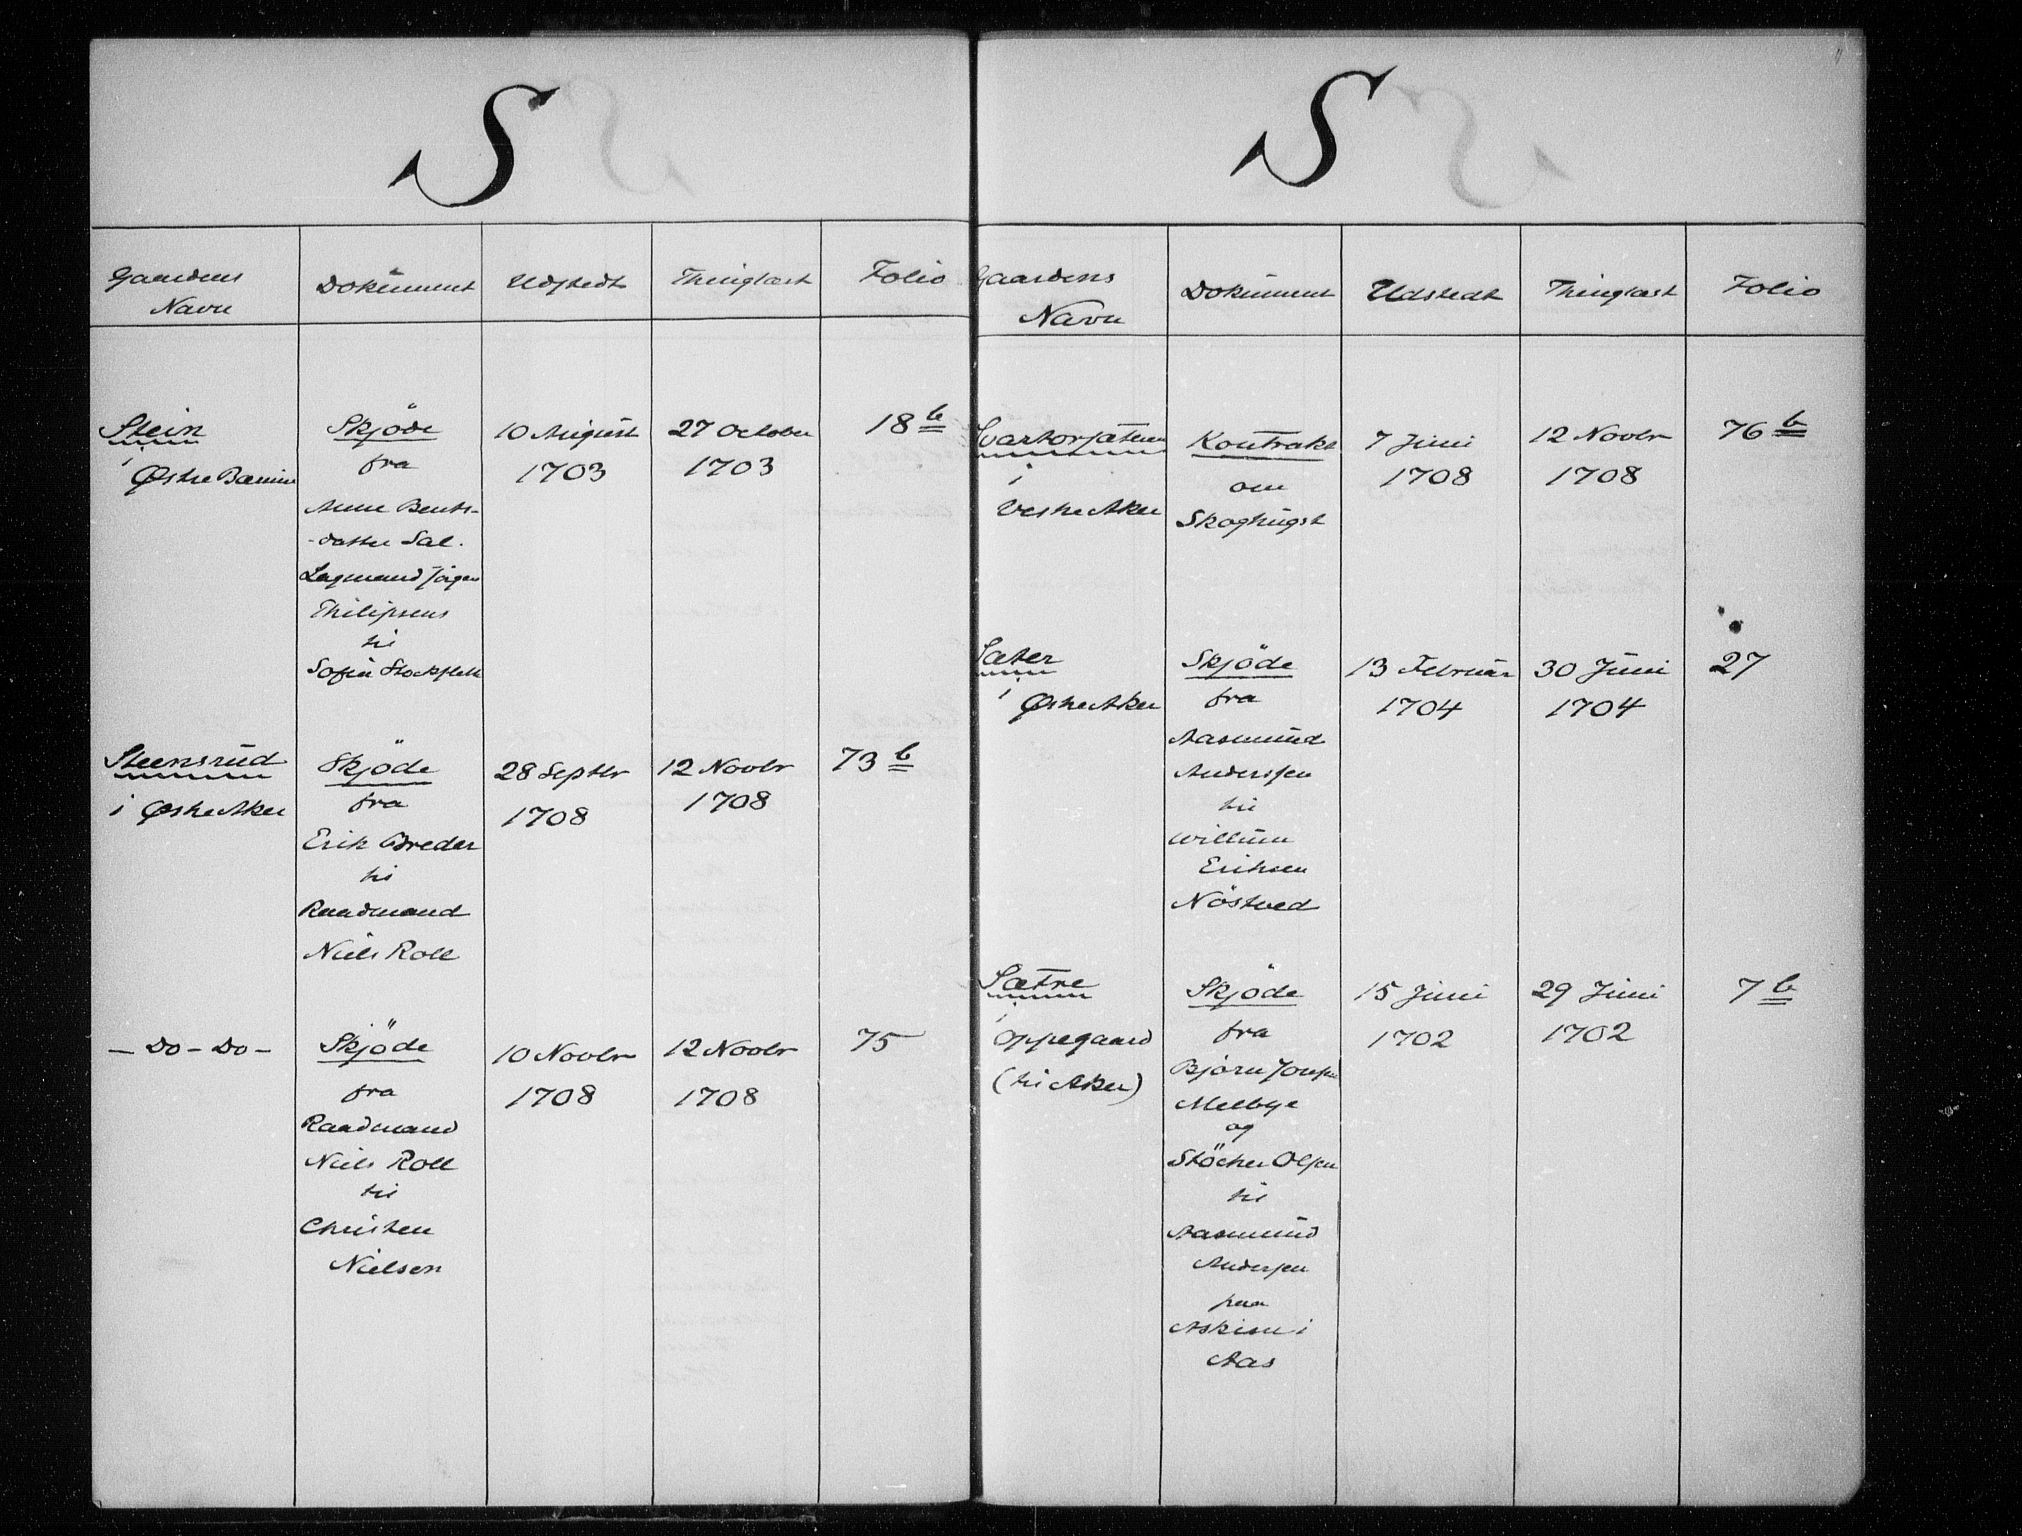 S
Gaardens Navn
Dokument
Udstedt
Thinglæst
Folio
Stein
i
Østre Bærum
Skjöde
fra
Anne Bents-
-datter Sal.
Lagmand Jörgen
Philipsens
til
Sofia Stockfleth
10 August
1703
27 October
1703
18 b
Steensrud
i Østre Aker
Skjöde
fra
Erik Breder
til
Raadmand
Niels Roll
28 Septbr
1708
12 Novbr
1708
73 b
- Do - Do -
Skjöde
fra
Raadmand
Niels Roll
til
Christen
Nielsen
10 Novbr
1708
12 Novbr
1708
75
S
Gaardens
Navn
Dokument
Udstedt
Thinglæst
Folio
i
Vestre Aker
Kontrakt
om
Skoghugst
7 Juni
1708
12 Novbr
1708
76 b
Sæter
i Østre Aker
Skjöde
fra
Aasmund
Anderssen
til
Willum
Eriksen
Nöstved
13 Februar
1704
30 Juni
1704
27
Sætre
i
Oppegaard
(til Aker)
Skjöde
fra
Björn
Melbye
og
Stöcher Olsen
til
Aasmund
Andersen
paa
Askim i
Aas
15 Juni
1702
29 Juni
1702
7 b